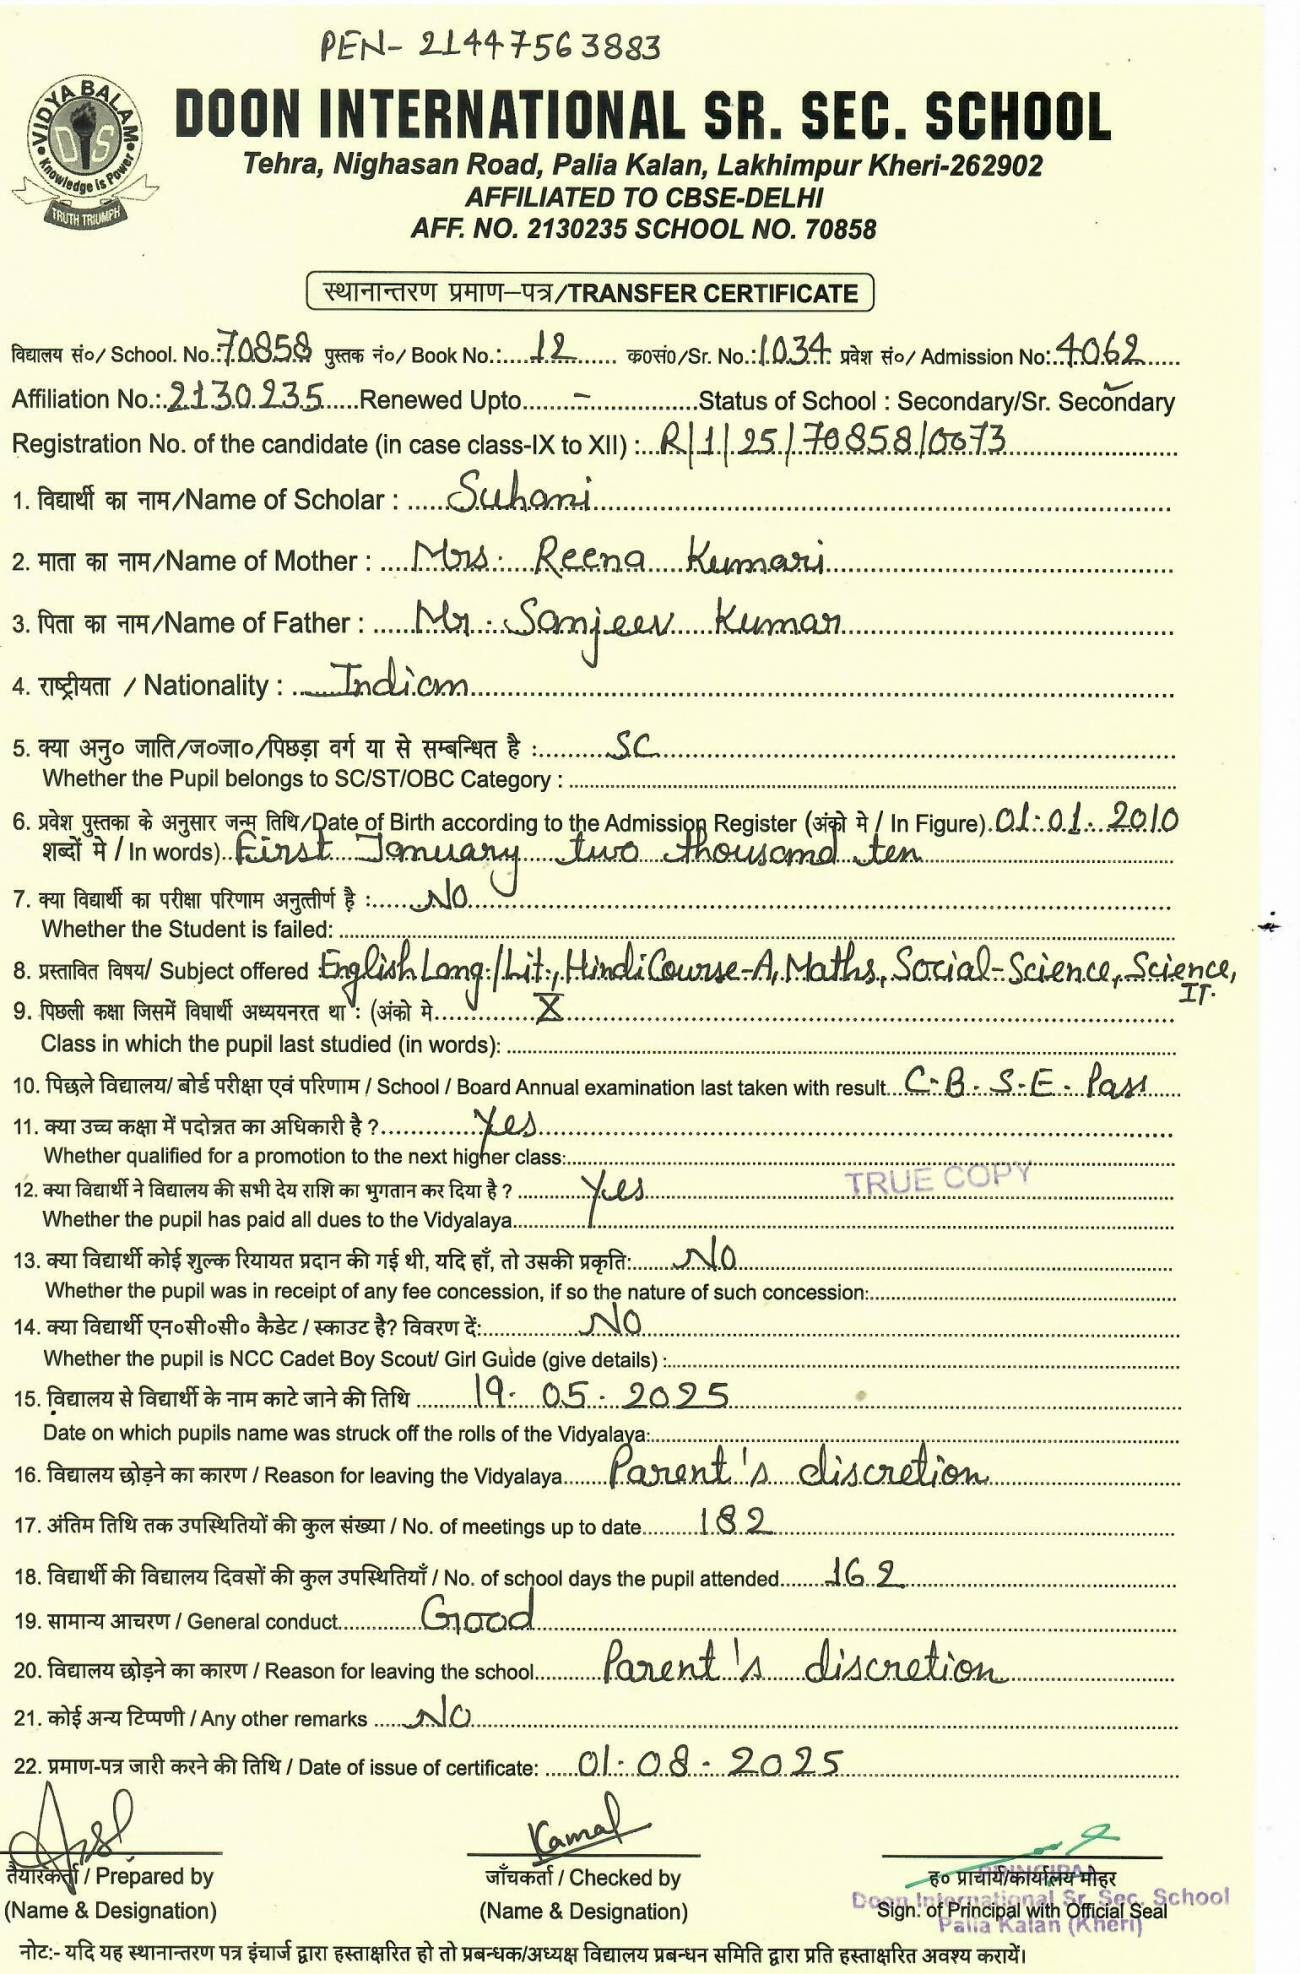 PEN- 21447563883
VIDYA BALAM
DIS
Knowledge is Power
TRUTH TRIUMPH
DOON INTERNATIONAL SR. SEC. SCHOOL
Tehra, Nighasan Road, Palia Kalan, Lakhimpur Kheri-262902
AFFILIATED TO CBSE-DELHI
AFF. NO. 2130235 SCHOOL NO. 70858
स्थानान्तरण प्रमाण–पत्र/TRANSFER CERTIFICATE
विद्यालय सं०/ School. No.: 70858 पुस्तक नं०/ Book No.: 12 क०सं०/Sr. No.: 1034 प्रवेश सं०/ Admission No: 4062
Affiliation No.: 2130235 Renewed Upto - Status of School : Secondary/Sr. Secondary
Registration No. of the candidate (in case class-IX to XII) : R/1/25/70858/0073
1. विद्यार्थी का नाम/Name of Scholar : Suhani
2. माता का नाम/Name of Mother : Mrs. Reena Kumari
3. पिता का नाम/Name of Father : Mr. Sanjeev Kumar
4. राष्ट्रीयता / Nationality : Indian
5. क्या अनु० जाति/ज०जा०/पिछड़ा वर्ग या से सम्बन्धित है : SC
Whether the Pupil belongs to SC/ST/OBC Category :
6. प्रवेश पुस्तका के अनुसार जन्म तिथि/Date of Birth according to the Admission Register (अंको मे / In Figure). 01.01.2010
शब्दों मे / In words) First January two thousand ten
7. क्या विद्यार्थी का परीक्षा परिणाम अनुत्तीर्ण है : No
Whether the Student is failed:
8. प्रस्तावित विषय/ Subject offered : English Lang./Lit., Hindi Course-A, Maths, Social-Science, Science,
IT.
9. पिछली कक्षा जिसमें विधार्थी अध्ययनरत था : (अंको मे X
Class in which the pupil last studied (in words):
10. पिछले विद्यालय/ बोर्ड परीक्षा एवं परिणाम / School / Board Annual examination last taken with result C.B.S.E. Pass
11. क्या उच्च कक्षा में पदोन्नत का अधिकारी है ? Yes
Whether qualified for a promotion to the next higher class:
12. क्या विद्यार्थी ने विद्यालय की सभी देय राशि का भुगतान कर दिया है ? Yes TRUE COPY
Whether the pupil has paid all dues to the Vidyalaya
13. क्या विद्यार्थी कोई शुल्क रियायत प्रदान की गई थी, यदि हाँ, तो उसकी प्रकृति: No
Whether the pupil was in receipt of any fee concession, if so the nature of such concession:
14. क्या विद्यार्थी एन०सी०सी० कैडेट / स्काउट है? विवरण दें: No
Whether the pupil is NCC Cadet Boy Scout/ Girl Guide (give details) :
15. विद्यालय से विद्यार्थी के नाम काटे जाने की तिथि 19.05.2025
Date on which pupils name was struck off the rolls of the Vidyalaya:
16. विद्यालय छोड़ने का कारण / Reason for leaving the Vidyalaya Parent's discretion
17. अंतिम तिथि तक उपस्थितियों की कुल संख्या / No. of meetings up to date 182
18. विद्यार्थी की विद्यालय दिवसों की कुल उपस्थितियाँ / No. of school days the pupil attended 162
19. सामान्य आचरण / General conduct Good
20. विद्यालय छोड़ने का कारण / Reason for leaving the school Parent's discretion
21. कोई अन्य टिप्पणी / Any other remarks No
22. प्रमाण-पत्र जारी करने की तिथि / Date of issue of certificate: 01.08.2025
Kamal
तैयारकर्ता / Prepared by जाँचकर्ता / Checked by ह० प्राचार्य/कार्यालय मोहर
PRINCIPAL
Doon International Sr. Sec. School
(Name & Designation) (Name & Designation) Sign. of Principal with Official Seal
Palia Kalan (Kheri)
नोट:- यदि यह स्थानान्तरण पत्र इंचार्ज द्वारा हस्ताक्षरित हो तो प्रबन्धक/अध्यक्ष विद्यालय प्रबन्धन समिति द्वारा प्रति हस्ताक्षरित अवश्य करायें।